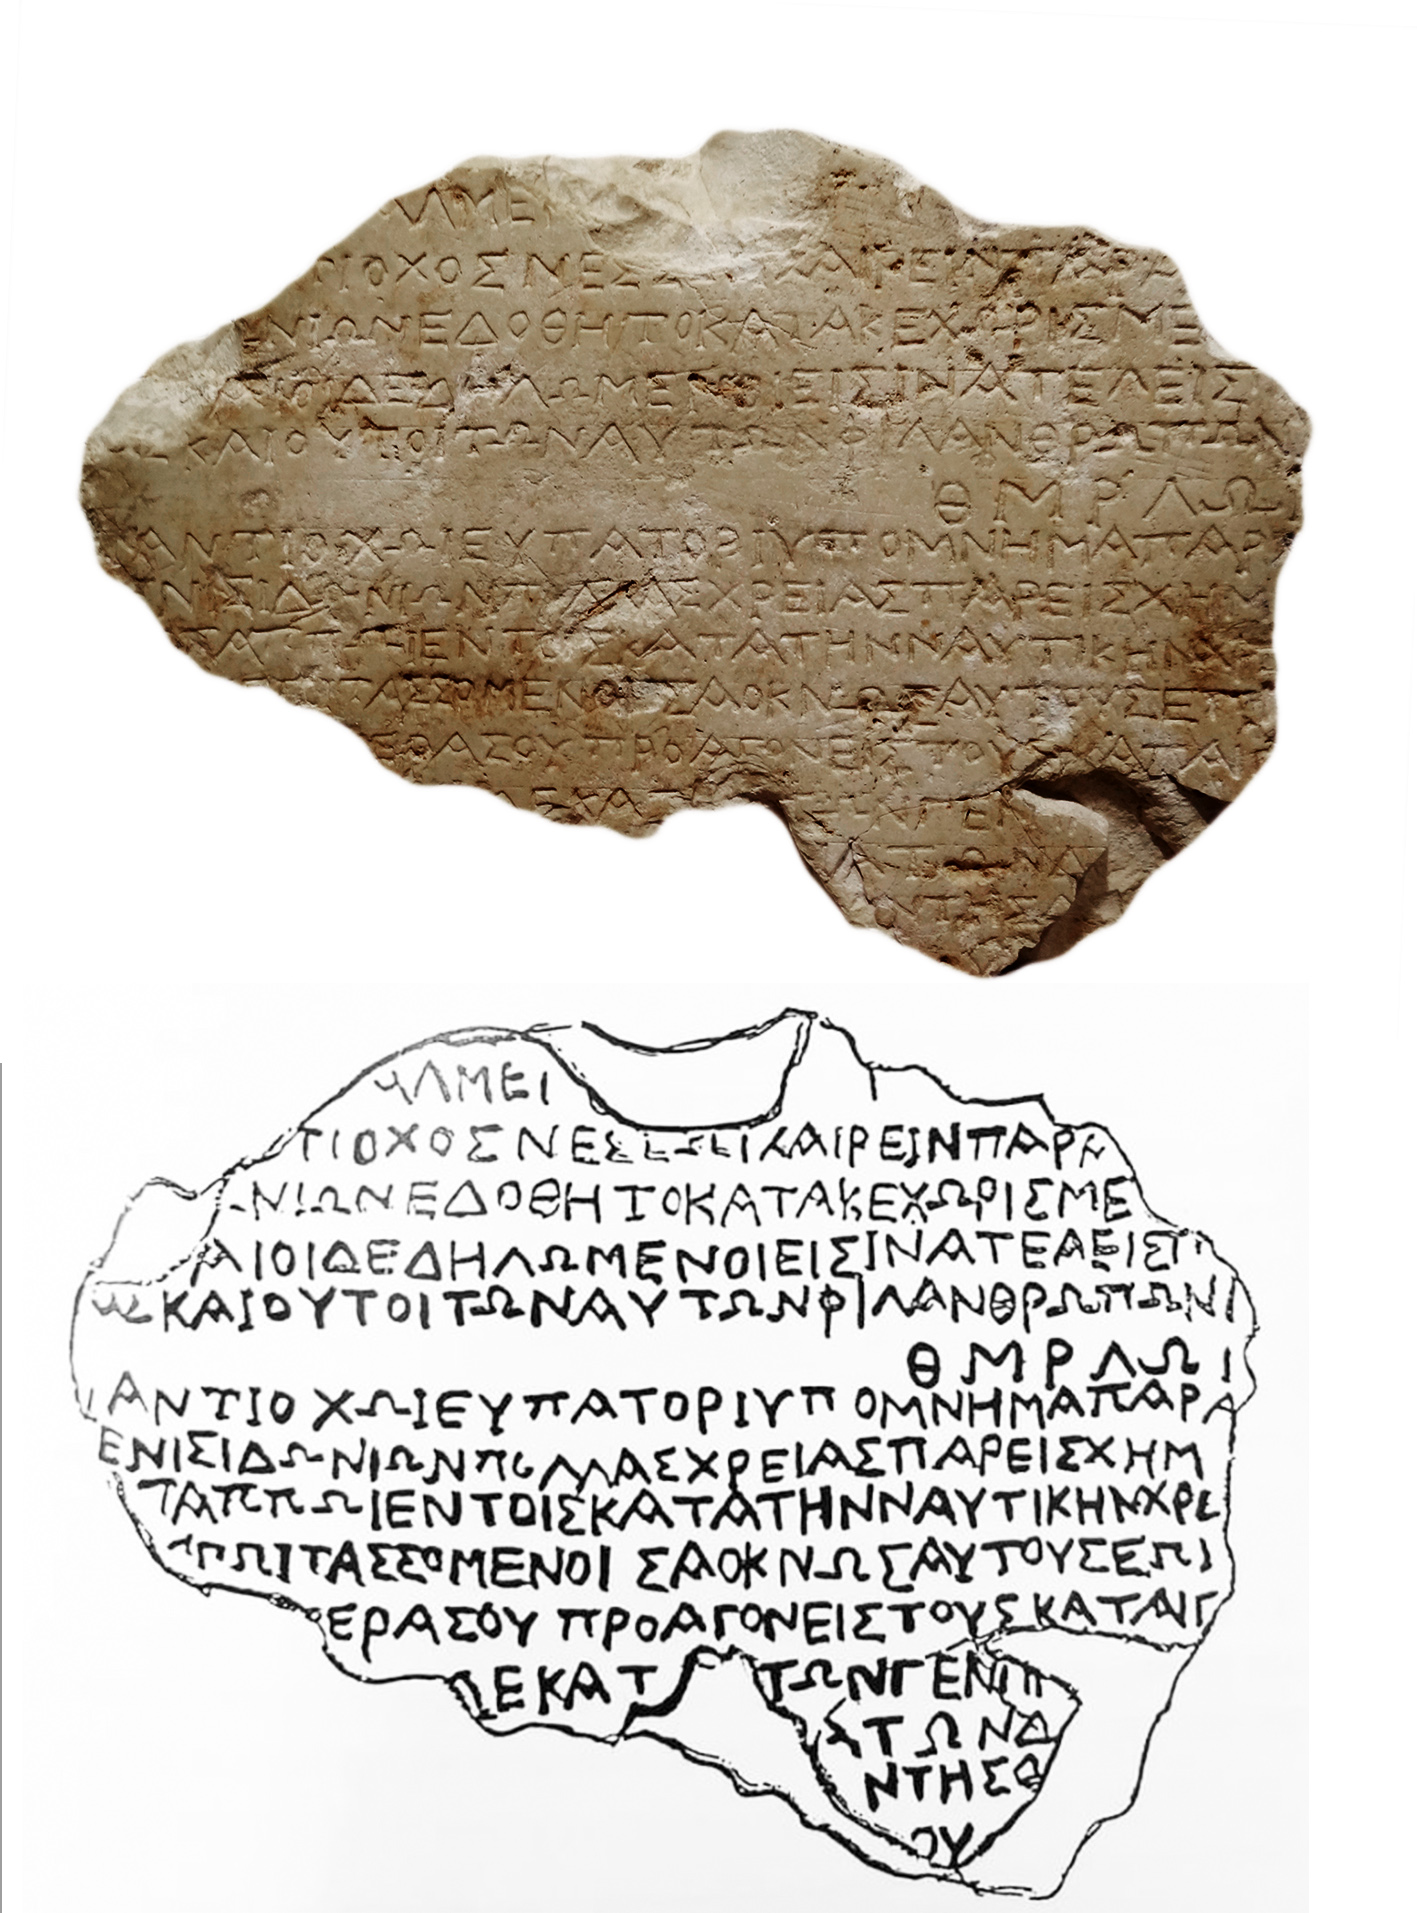 ΛΜΕΙ
ΤΙΟΧΟΣΝΕΣ ΧΑΙΡΕΙΝΠΑΡΑ
ΝΙΩΝΕΔΟΘΗΤΟΚΑΤΑΚΕΧΩΡΙΣΜΕ
ΑΙΟΙΔΕΔΗΛΩΜΕΝΟΙΕΙΣΙΝΑΤΕΛΕΙΣ
ΚΑΙΟΥΤΟΙΤΩΝΑΥΤΩΝΦΙΛΑΝΘΡΩΠΩΝ
ΘΜΡΛΩ
ΑΝΤΙΟΧΩΙΕΥΠΑΤΟΡΙΥΠΟΜΝΗΜΑΠΑΡ
ΝΙΣΙΔΩΝΙΩΝΠΟΛΛΑΣΧΡΕΙΑΣΠΑΡΕΙΣΧΗΜ
ΤΑΠΠΩΙΕΝΤΟΙΣΚΑΤΑΤΗΝΝΑΥΤΙΚΗΝΧΡΕ
ΤΑΣΣΟΜΕΝΟΙΣΑΟΚΝΩΣΑΥΤΟΥΣΕΠΙ
ΕΡΑΣΟΥΠΡΟΑΓΟΝΕΙΣΤΟΥΣΚΑΤΑΙ
ΕΚΑΤ ΤΩΝΓΕΝ
ΤΩΝΔ
ΝΤΗΣΩ
ΛΜΕΙ
ΤΙΟΧΟΣΝΕΣ ΧΑΙΡΕΙΝΠΑΡΑ
ΝΙΩΝΕΔΟΘΗΤΟΚΑΤΑΚΕΧΩΡΙΣΜΕ
ΑΙΟΙΔΕΔΗΛΩΜΕΝΟΙΕΙΣΙΝΑΤΕΛΕΙΣΤ
ΩΣΚΑΙΟΥΤΟΙΤΩΝΑΥΤΩΝΦΙΛΑΝΘΡΩΠΩΝΙ
ΘΜΡΛΩΙ
ΙΑΝΤΙΟΧΩΙΕΥΠΑΤΟΡΙΥΠΟΜΝΗΜΑΠΑΡΑ
ΕΝΙΣΙΔΩΝΙΩΝΠΟΛΛΑΣΧΡΕΙΑΣΠΑΡΕΙΣΧΗΜ
ΤΑΠΠΩΙΕΝΤΟΙΣΚΑΤΑΤΗΝΝΑΥΤΙΚΗΝΧΡΕ
ΠΩΙΤΑΣΣΟΜΕΝΟΙΣΑΟΚΝΩΣΑΥΤΟΥΣΕΠΙ
ΕΡΑΣΟΥΠΡΟΑΓΟΝΕΙΣΤΟΥΣΚΑΤΑΙΓ
ΕΚΑΤ ΤΩΝΓΕΝΠ
ΤΩΝΔ
ΝΤΗΣΩ
ΟΥ